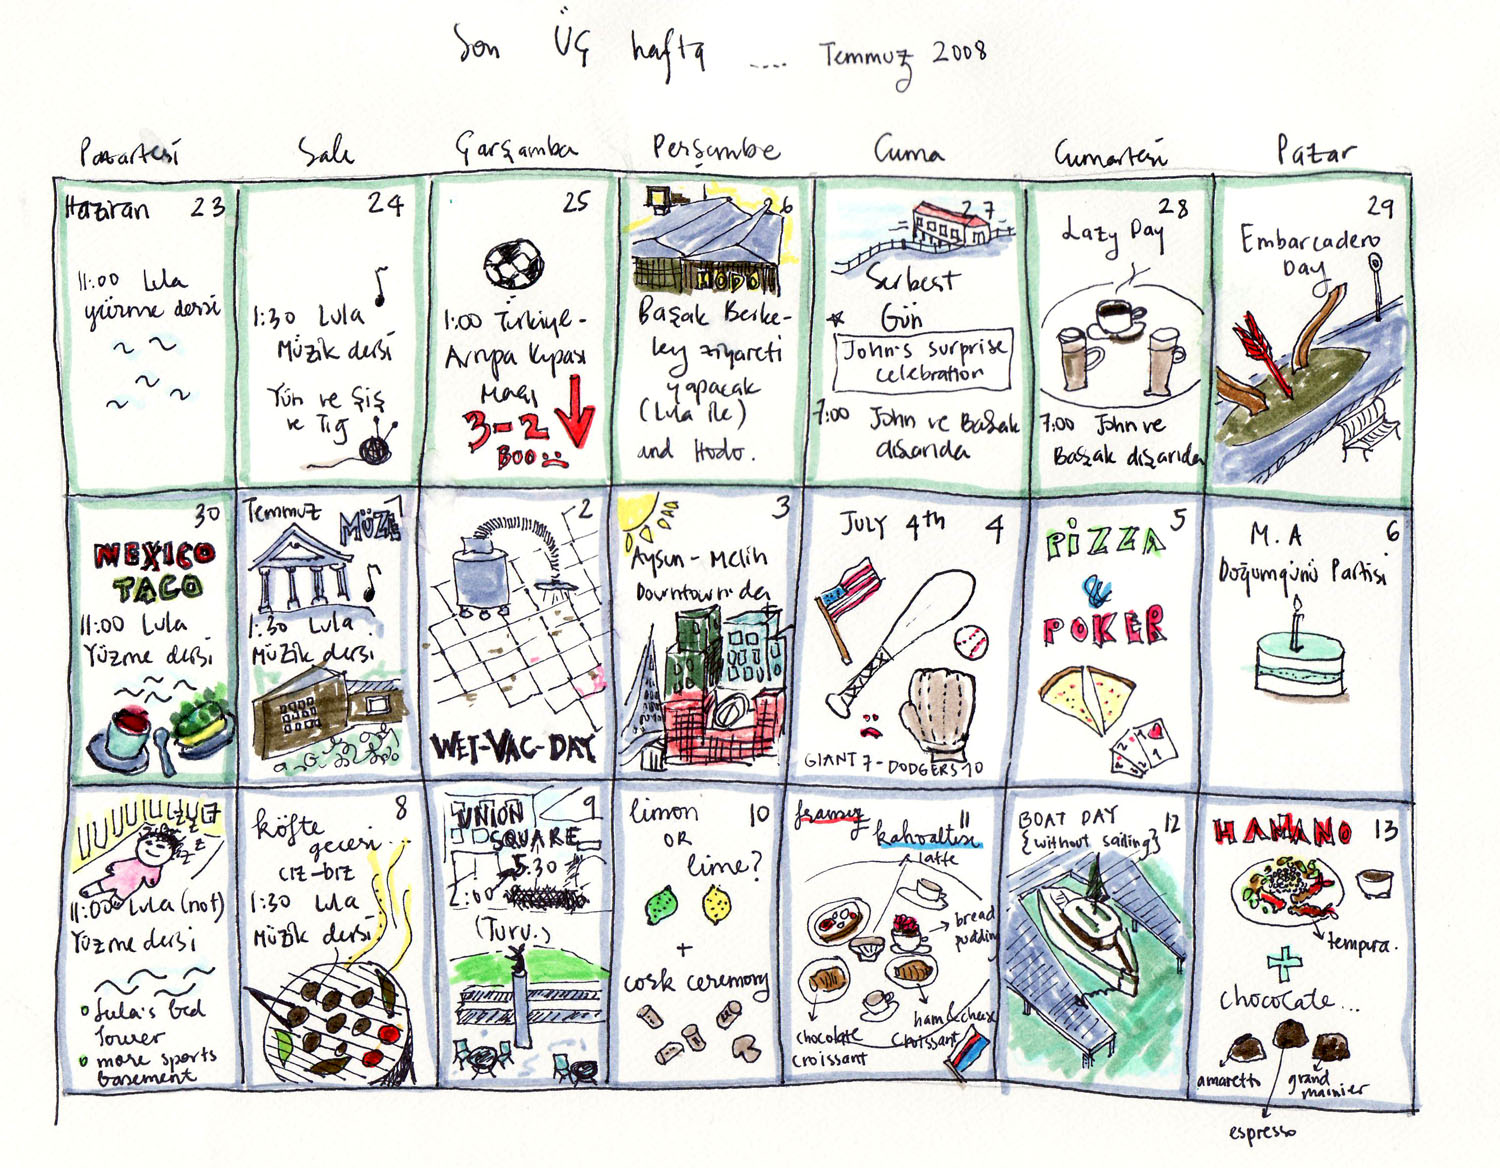 Son Üç hafta .... Temmuz 2008
Pazartesi Salı Çarşamba Perşembe Cuma Cumartesi Pazar
Haziran 23
11:00 Lula
yüzme dersi
24
1:30 Lula
Müzik dersi
Yün ve Şiş
ve Tığ
25
1:00 Türkiye-
Avrupa Kupası
Maçı
3-2
BOO
26
HODO
Başak Berke-
ley ziyareti
yapacak
(Lula ile)
and Hodo.
27
Serbest
Gün
John's surprise
celebration
7:00 John ve Başak
dışarıda
28
Lazy Day
7:00 John ve
Başak dışarıda
29
Embarcadero
Day
30
MEXICO
TACO
11:00 Lula
Yüzme dersi
Temmuz 1
MÜZE
1:30 Lula
Müzik dersi
2
WET-VAC-DAY
3
Aysun-Melih
Downtown'da
JULY 4th 4
GIANT 7 - DODGERS 10
5
PİZZA
&
POKER
6
M.A
Doğumgünü Partisi
7
zzz
11:00 Lula (not)
Yüzme dersi
Lula's bed
Tower
more sports
basement
8
köfte
gecesi...
cız-bız
1:30 Lula
Müzik dersi
9
UNION
SQUARE
5:30
2:00
(Turu.)
10
limon
OR
lime?
+
cork ceremony
11
kahvaltısı
latte
bread
pudding
ham & cheese
croissant
chocolate
croissant
BOAT DAY 12
{without sailing}
HAMANO 13
tempura.
+
chocolate...
amaretto
grand
marnier
espresso